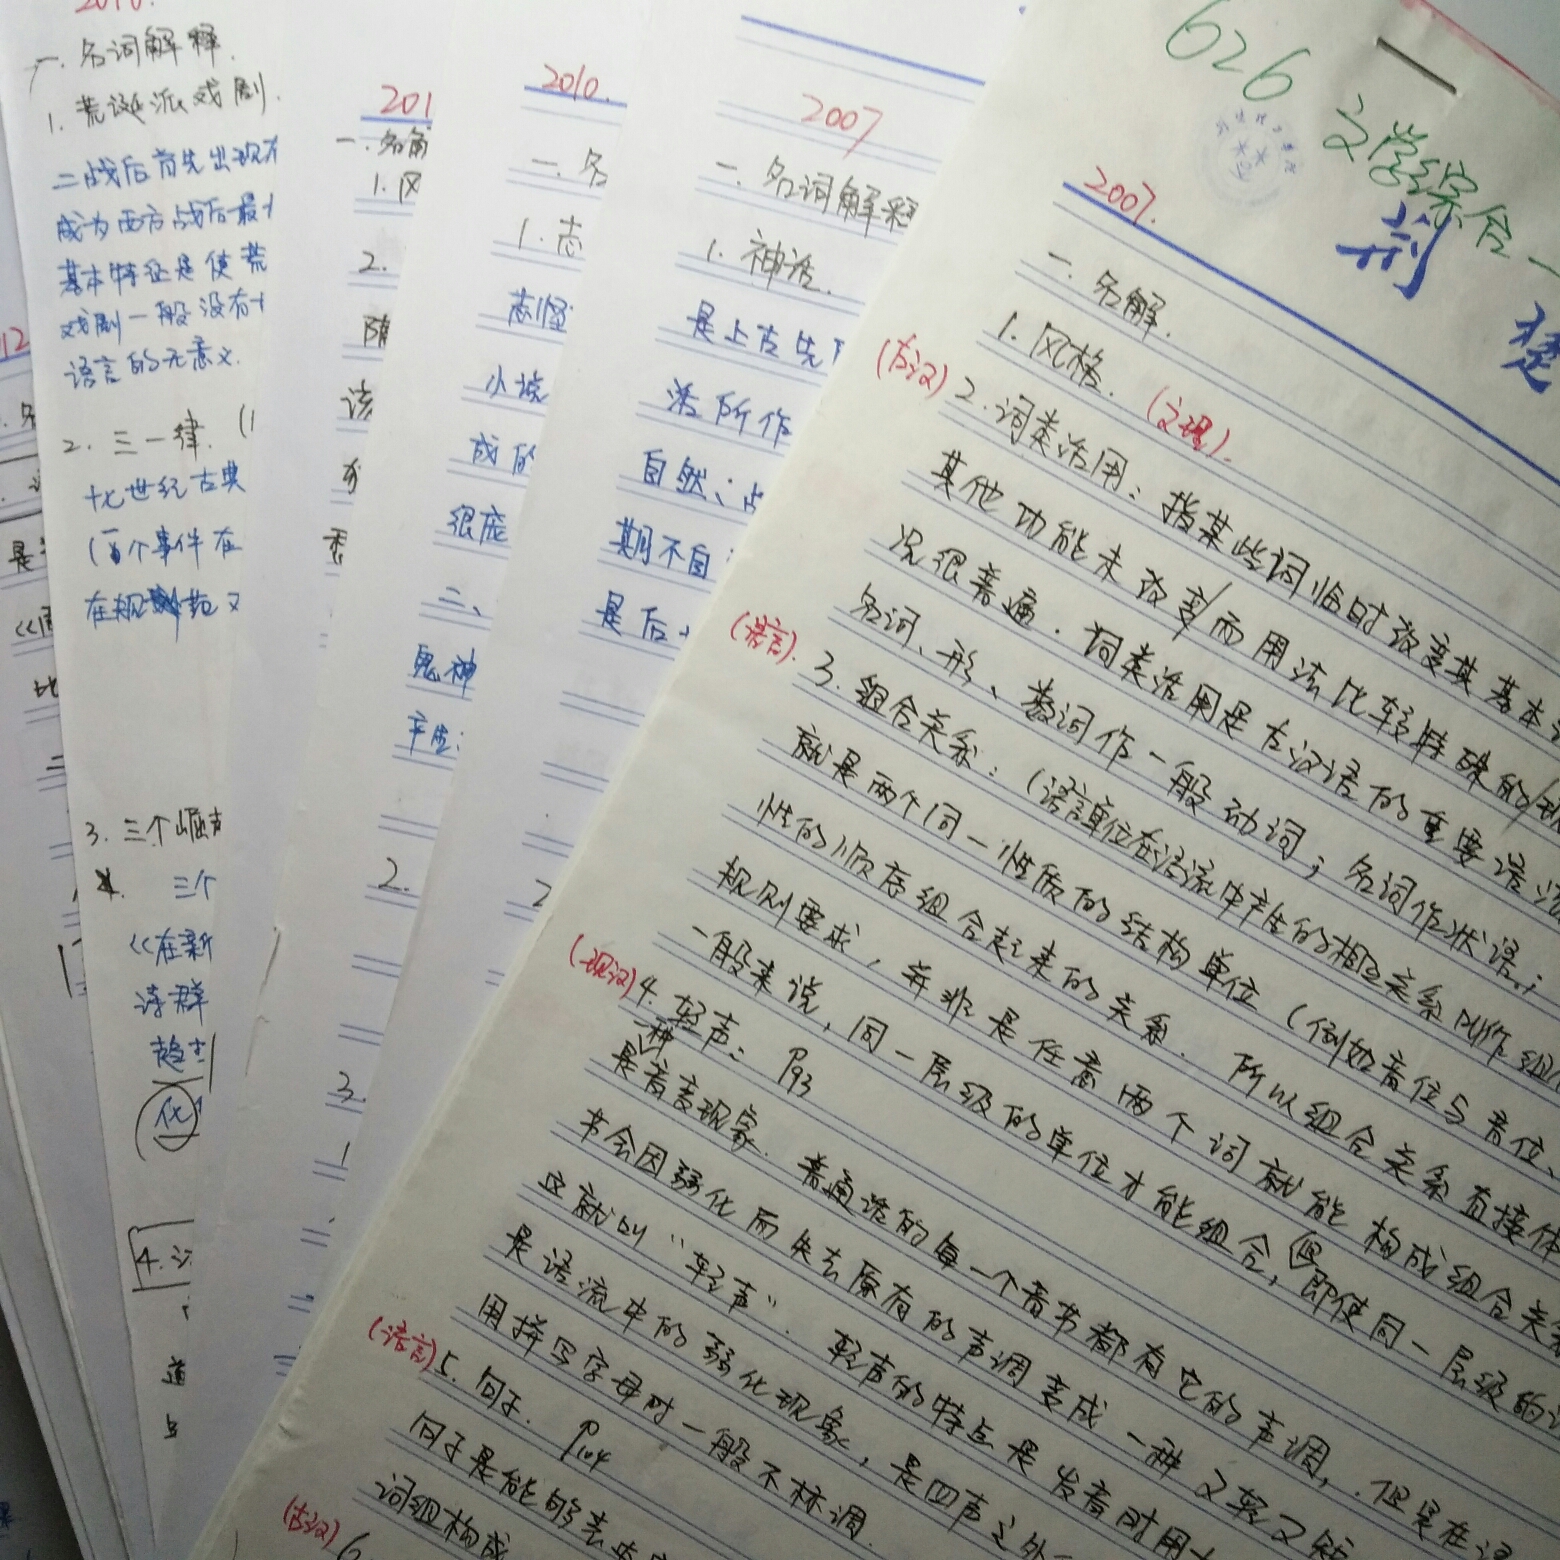 626 文学综合一
荆
楚
2007.
一. 名解.
1. 风格. (文理).
(古汉) 2. 词类活用: 指某些词临时改变其基本
其他功能未改变而用法比较特殊的
况很普遍. 词类活用是古汉语的重要语法
名词、形、数词作一般动词; 名词作状语;
(语言). 3. 组合关系: (语言单位在语流中产生的相互关系叫作组
就是两个同一性质的结构单位 (例如音位与音位、
性的顺序组合起来的关系. 所以组合关系直接体
规则要求, 并非是任意两个词就能构成组合关系
一般来说, 同一层级的单位才能组合, 即使同一层级的
(现汉) 4. 轻声: P93
是一种音变现象. 普通话的每一个音节都有它的声调, 但是在
节会因弱化而失去原有的声调变成一种又轻又短
这就叫"轻声". 轻声的特点是发音时用
是语流中的弱化现象, 是四声之外
用拼写字母时一般不标调.
(语言) 5. 句子. P104
句子是能够表达
词组构成
(古汉) 6
2007
一. 名词解释
1. 神话.
是上古先
活所作
自然、
期不自
是后
2010.
一. 名
1. 志
志怪
小说
成的
很
二、
鬼神
产生
2.
201
一. 名
1. 风
2.
隋
该
2.
3.
1
一. 名词解释.
1. 荒诞派戏剧.
二战后首先出现
成为西方战后最
基本特征是使荒
戏剧一般没有
语言的无意义.
2. 三一律.
十七世纪古典
(一个事件在
在规范
3. 三个崛起
三个
《在新
诗群
4.
道
12
是
比
二